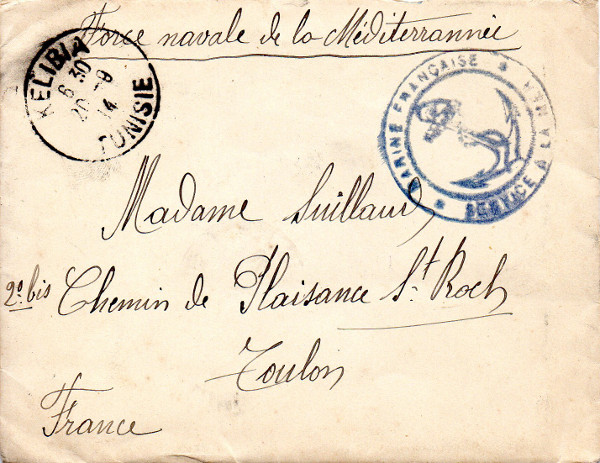 Force navale de la Méditerrannée
KELIBIA
6 30
20 -9
14
TUNISIE
MARINE FRANÇAISE * SERVICE A LA MER *
Madame Suillaud
20 bis Chemin de Plaisance St Roch
Toulon
France